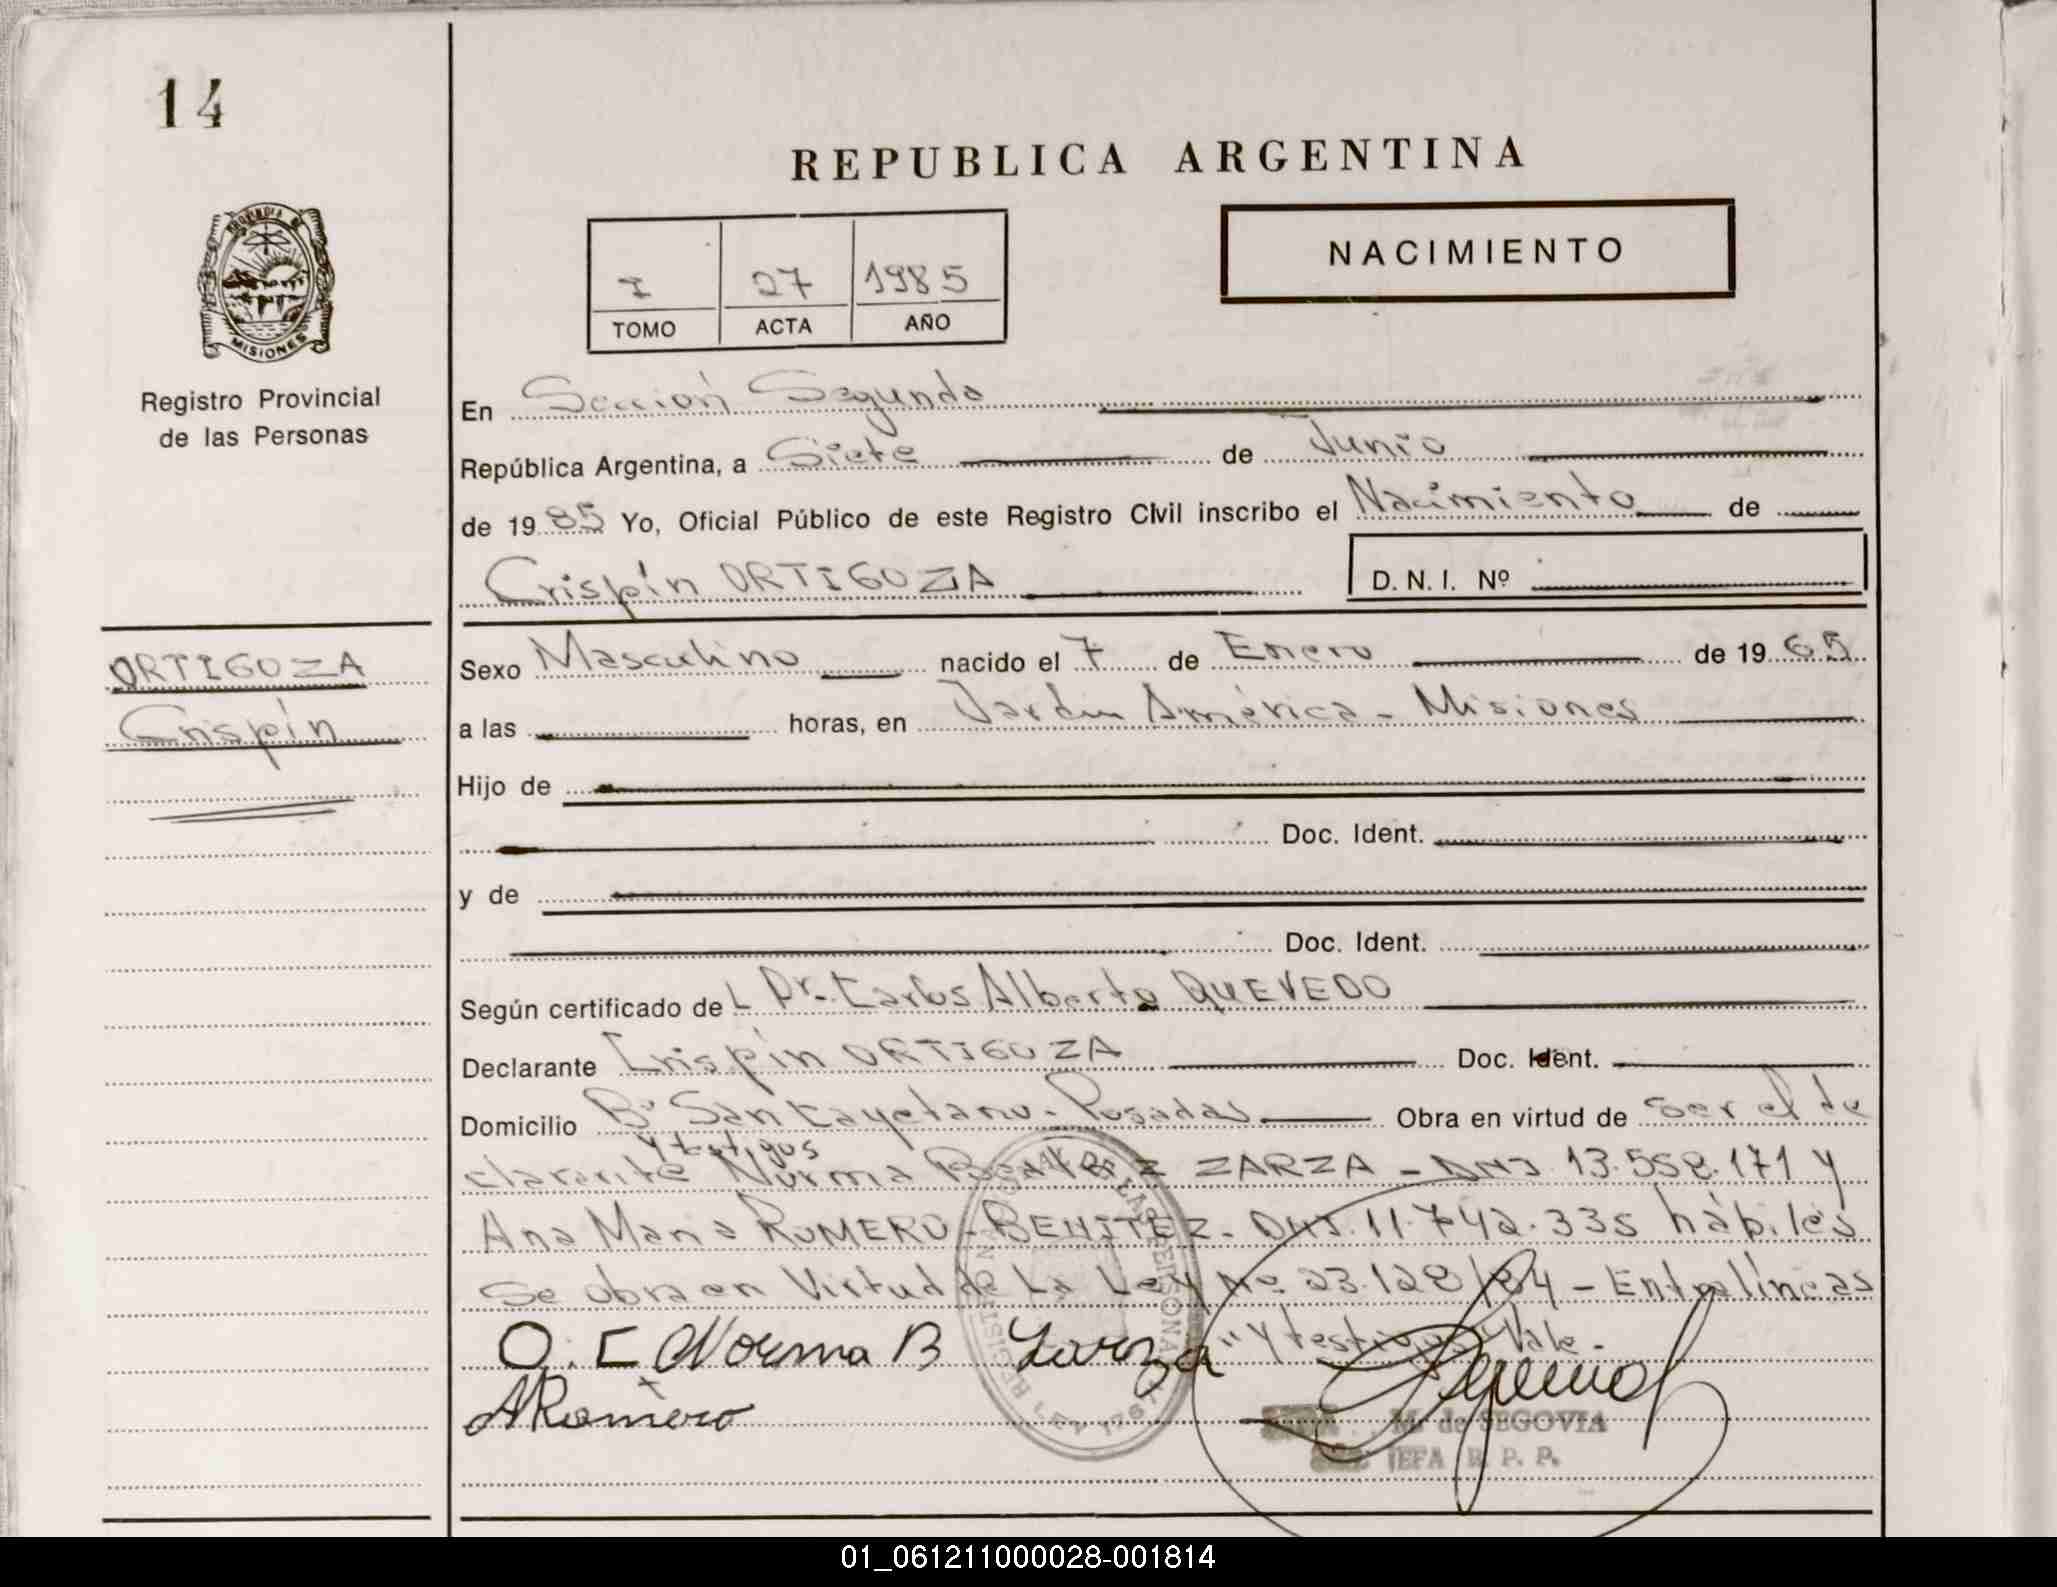 14
REPUBLICA ARGENTINA
PROVINCIA DE
MISIONES
Registro Provincial
de las Personas
I 27 1985
TOMO ACTA AÑO
NACIMIENTO
En Sección Segunda
República Argentina, a Siete de Junio
de 1985 Yo, Oficial Público de este Registro Civil inscribo el Nacimiento de
Crispín ORTIGOZA D.N.I. Nº
ORTIGOZA
Crispín
Sexo Masculino nacido el 7 de Enero de 1965
a las horas, en Jardín América - Misiones
Hijo de
Doc. Ident.
y de
Doc. Ident.
Según certificado del Dr. Carlos Alberto QUEVEDO
Declarante Crispín ORTIGOZA Doc. Ident.
Domicilio Bº San Cayetano - Posadas Obra en virtud de ser el de
y testigos
clarante Norma Beatriz ZARZA - DNI 13.558.171 y
Ana Maria ROMERO - BENITEZ - DNI. 11.742.335 hábiles
Se obra en Virtud de La Ley Nº 23.128/84 - Entrelíneas
"y testigos" Vale -
O. C Norma B Zarza
A Romero
M. de SEGOVIA
JEFA R. P. P.
01_061211000028-001814